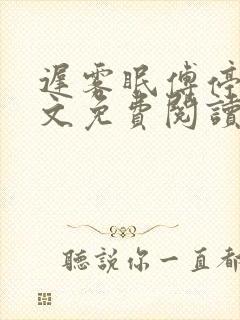 遲雾眠傅停
文免費閱讀
聽説你一直都